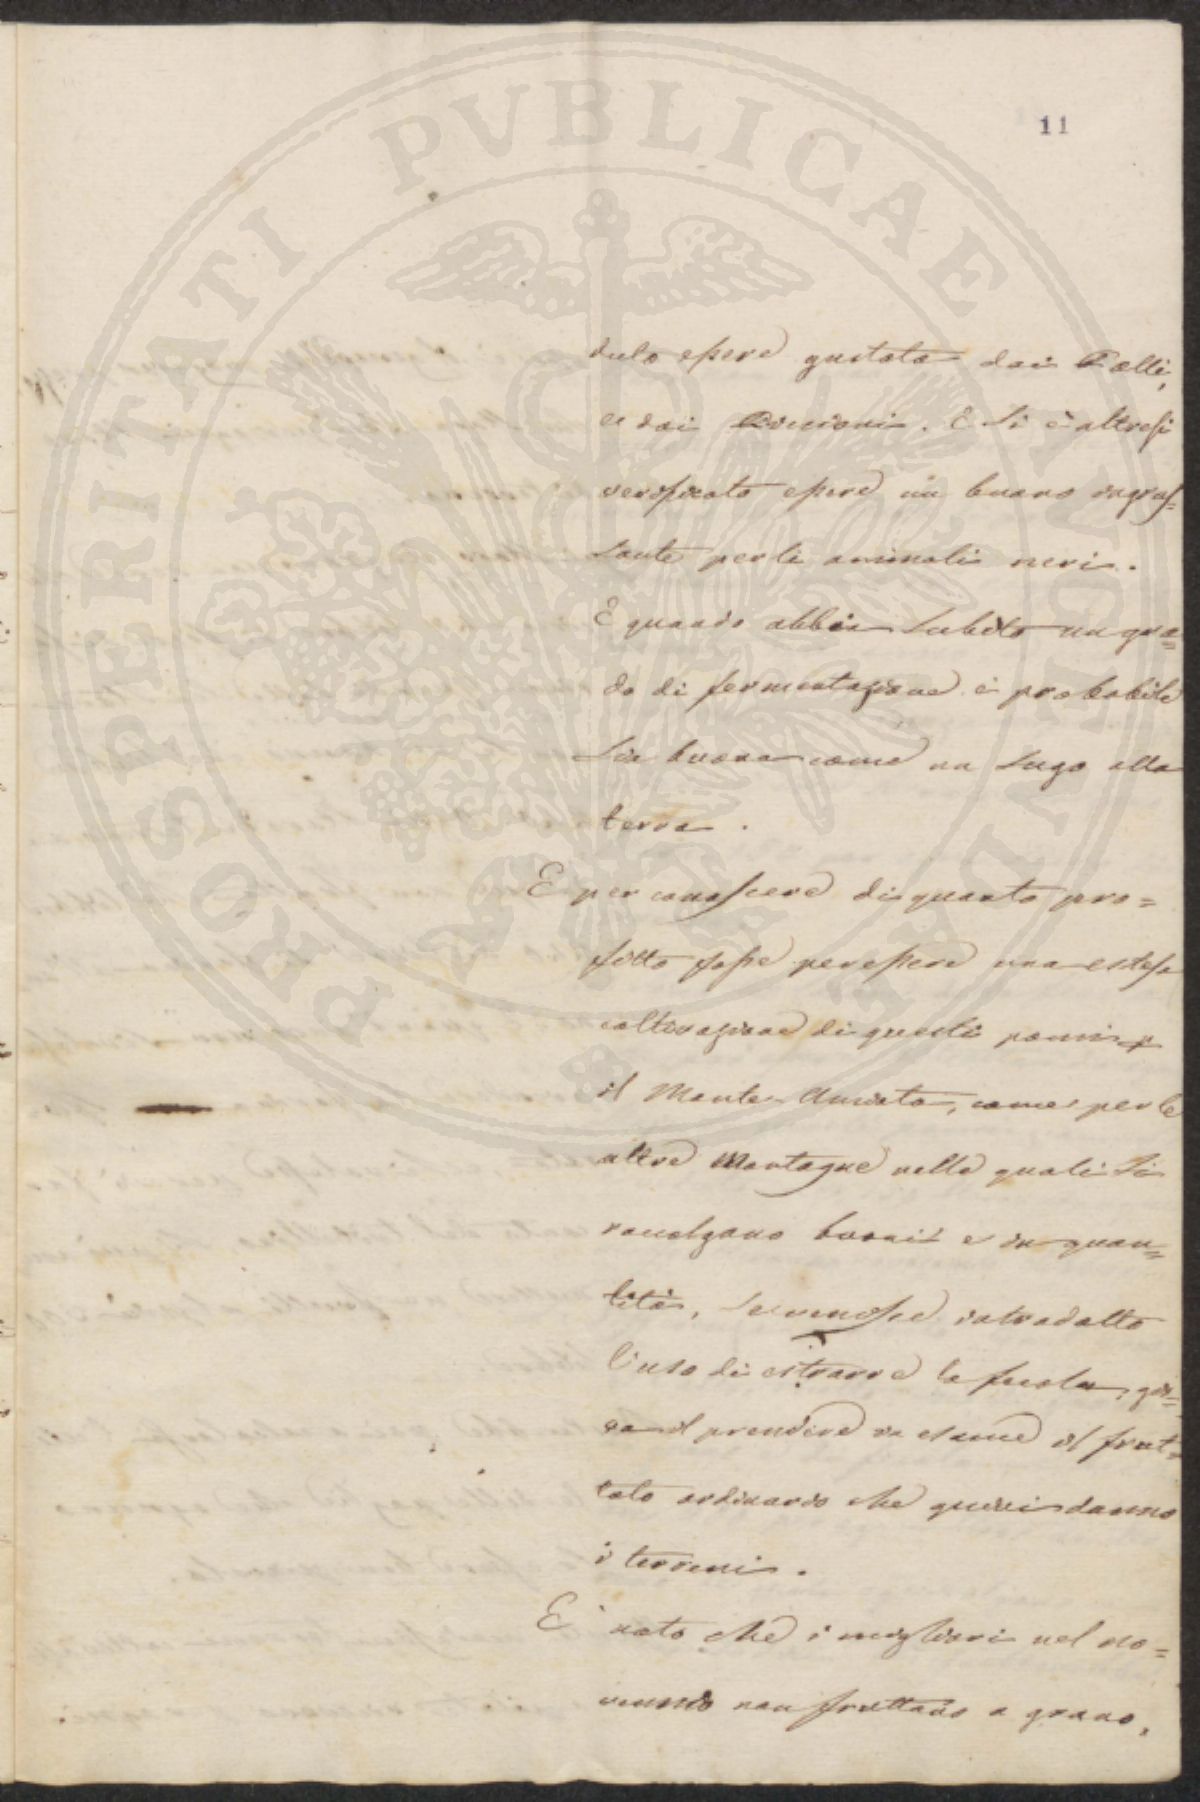 11
PROSPERITATI PVBLICAE AVGENDAE
duto essere gustata dai Polli,
e dai Piccioni. E si è altresì
verificato essere un buono ingras=
sante per li animali neri.
E quando abbia subito un gra=
do di fermentazione è probabile
sia buona come un sugo alla
terra.
E per conoscere di quanto pro=
fitto fosse per essere una estesa
coltivazione di questi pomi p
il Monte Amiata, come per le
altre Montagne nelle quali si
raccolgano buoni e in quan=
tità, se venisse introdotto
l'uso di estrarre la fecola, gio=
va il prendere in esame il frut=
tato ordinario che quivi danno
i terreni.
E' noto che i migliori nel no=
vennio non fruttano a grano,